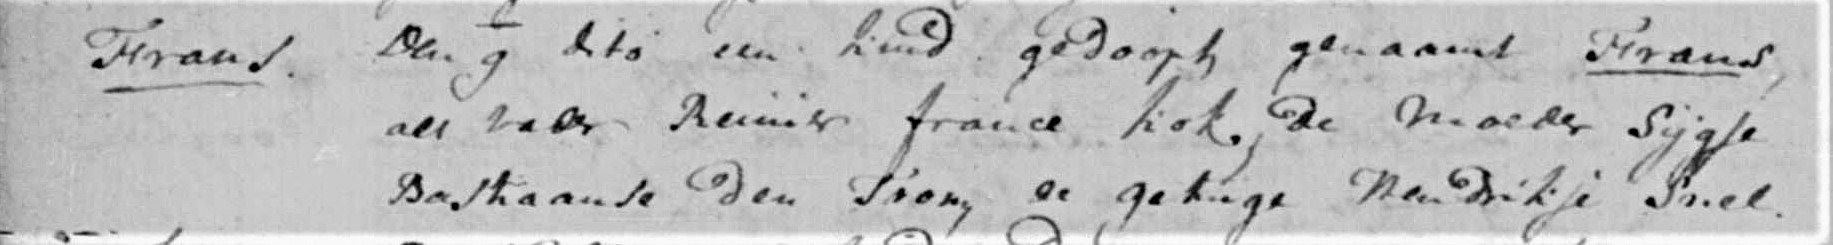 Frans. Den 9 dito een kind gedoopt genaamt Frans,
als vader Reinier france kok, de Moeder Sijgje
Bastiaanse Den de getuige Hendrikje Snel.